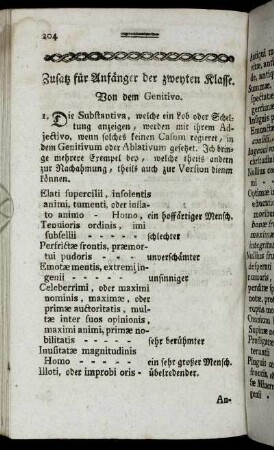 204
Zusatz für Anfänger der zweyten Klasse.
Von dem Genitivo.
1. Die Substantiva, welche ein Lob oder Schel-
tung anzeigen, werden mit ihrem Ad-
jectivo, wenn solches keinen Casum regieret, in
dem Genitivum oder Ablativum gesetzet. Ich brin-
ge mehrere Exempel bey, welche theils andern
zur Nachahmung, theils auch zur Version dienen
können.
Elati supercilii, insolentis
animi, tumenti, oder infla-
to animo - Homo, ein hoffärtiger Mensch.
Tenuioris ordinis, imi
subsellii - - - - - schlechter
Perfrictæ frontis, præmor-
tui pudoris - - - - unverschämter
Emotæ mentis, extremi in-
genii - - - - - unsinniger
Celeberrimi, oder maximi
nominis, maximæ, oder
primæ auctoritatis, mul-
tæ inter suos opinionis,
maximi animi, primæ no-
bilitatis - - - - - sehr berühmter
Inusitatæ magnitudinis
Homo - - - - - ein sehr großer Mensch.
Illoti, oder improbi oris - übelredender.
An-